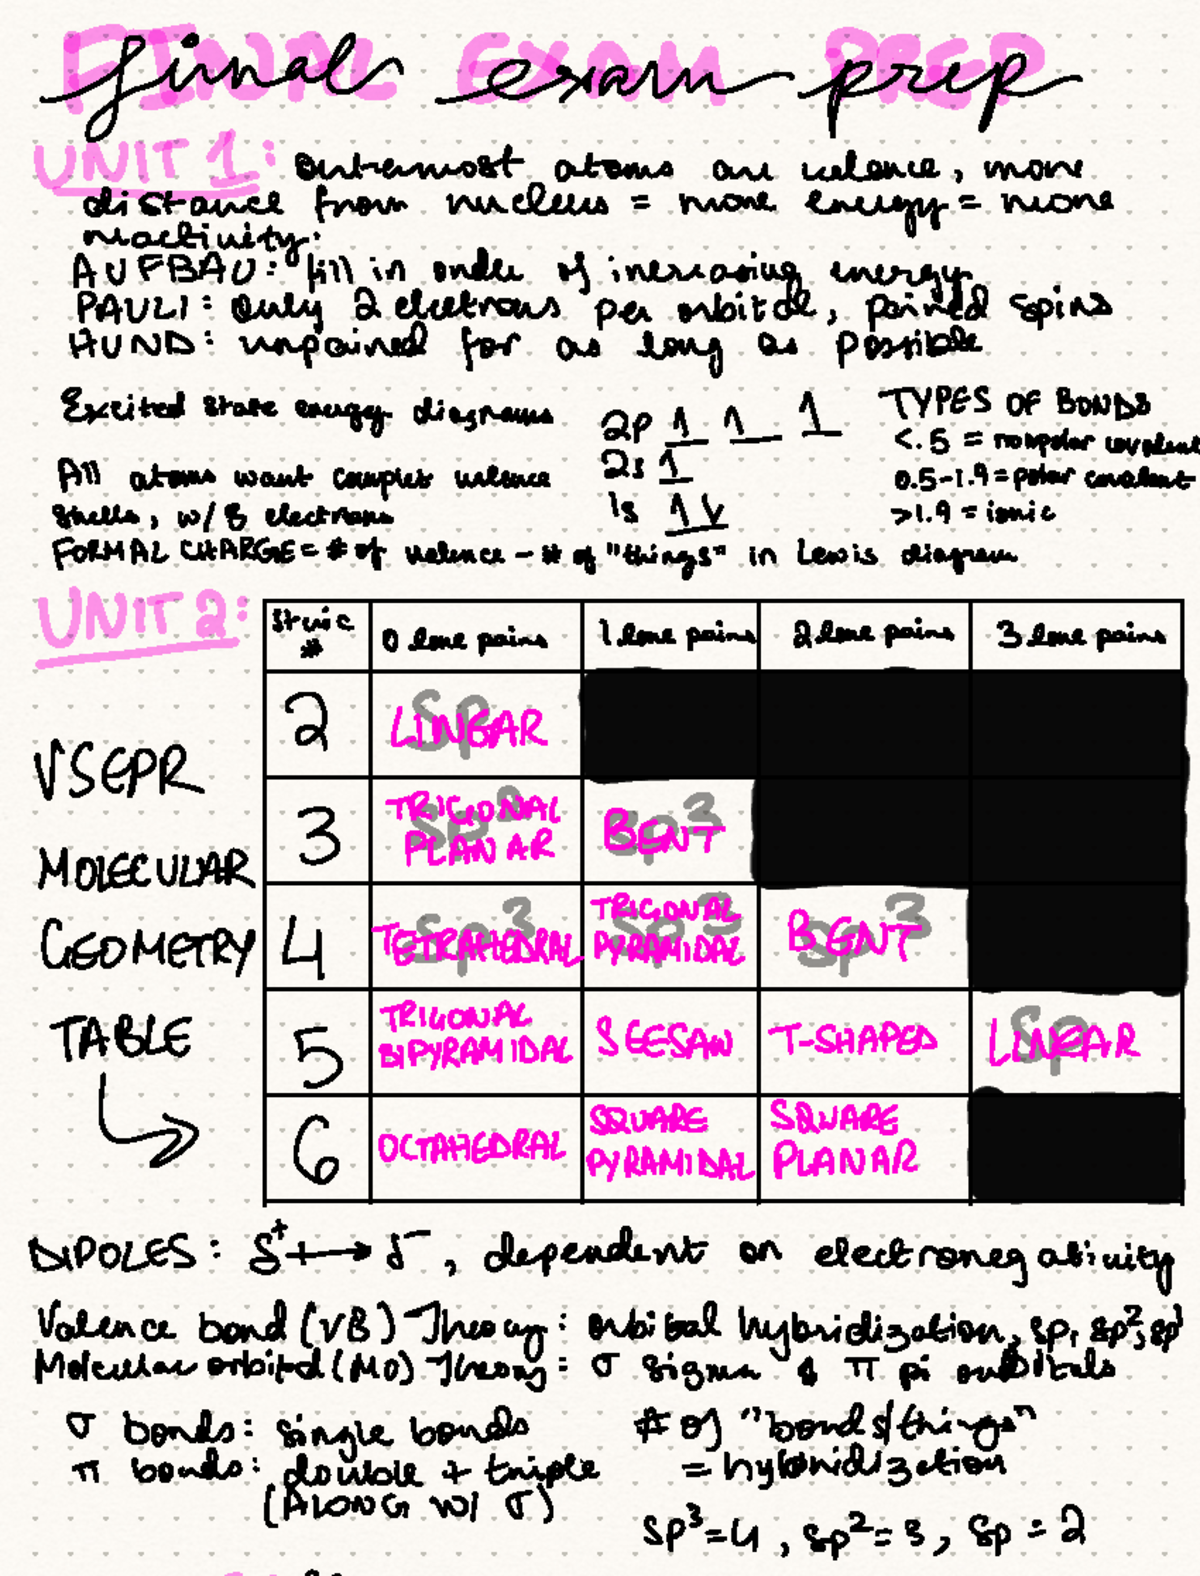 FINAL EXAM PREP
final exam prep
UNIT 1: outermost atoms are valence, more
distance from nucleus = more energy = more
reactivity.
AUFBAU: fill in order of increasing energy
PAULI: Only 2 electrons per orbital, paired spins
HUND: unpaired for as long as possible
Excited state energy diagrams
2p 1 1 1
2s 1
1s 1 V
TYPES OF BONDS
<.5 = nonpolar covalent
0.5-1.9 = polar covalent
>1.9 = ionic
All atoms want complet valence
shells, w/ 8 electrons
FORMAL CHARGE = # of valence - # of "things" in Lewis diagram
UNIT 2:
VSEPR
MOLECULAR
GEOMETRY
TABLE
Steric # 0 lone pairs 1 lone pairs 2 lone pairs 3 lone pairs
2 sp LINEAR
3 sp² TRIGONAL PLANAR sp³ BENT
4 sp³ TETRAHEDRAL sp³ TRIGONAL PYRAMIDAL sp³ BENT
5 TRIGONAL BIPYRAMIDAL SEESAW T-SHAPED sp LINEAR
6 OCTAHEDRAL SQUARE PYRAMIDAL SQUARE PLANAR
DIPOLES: δ+ ⟼ δ-, dependent on electronegativity
Valence bond (VB) Theory: orbital hybridization, sp, sp², sp³
Molecular orbital (MO) Theory: σ sigma & π pi orbitals
σ bonds: single bonds
π bonds: double + triple
(ALONG W/ σ)
# of "bonds/things"
= hybridization
sp³=4, sp²=3, sp=2